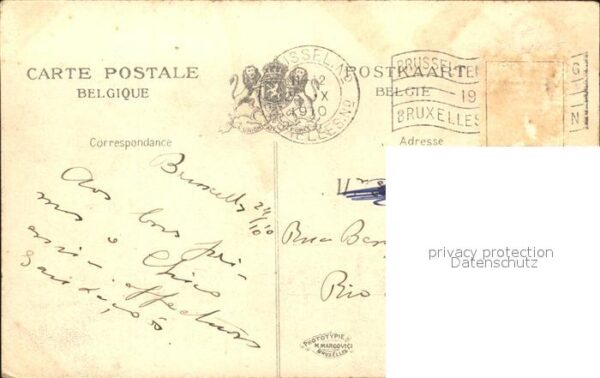 CARTE POSTALE
BELGIQUE
POSTKAART
BELGIË
BRUSSEL
1910
BRUXELLES
BRUSSEL
19
BRUXELLES
G
N
Correspondance
Adresse
Bruxelles 24/10/10
Aos bons pri-
mos e Chico
affectuosas
Saudações
Rua
Rio
privacy protection
Datenschutz
PHOTOTYPIE
M. MARCOVICI
BRUXELLES